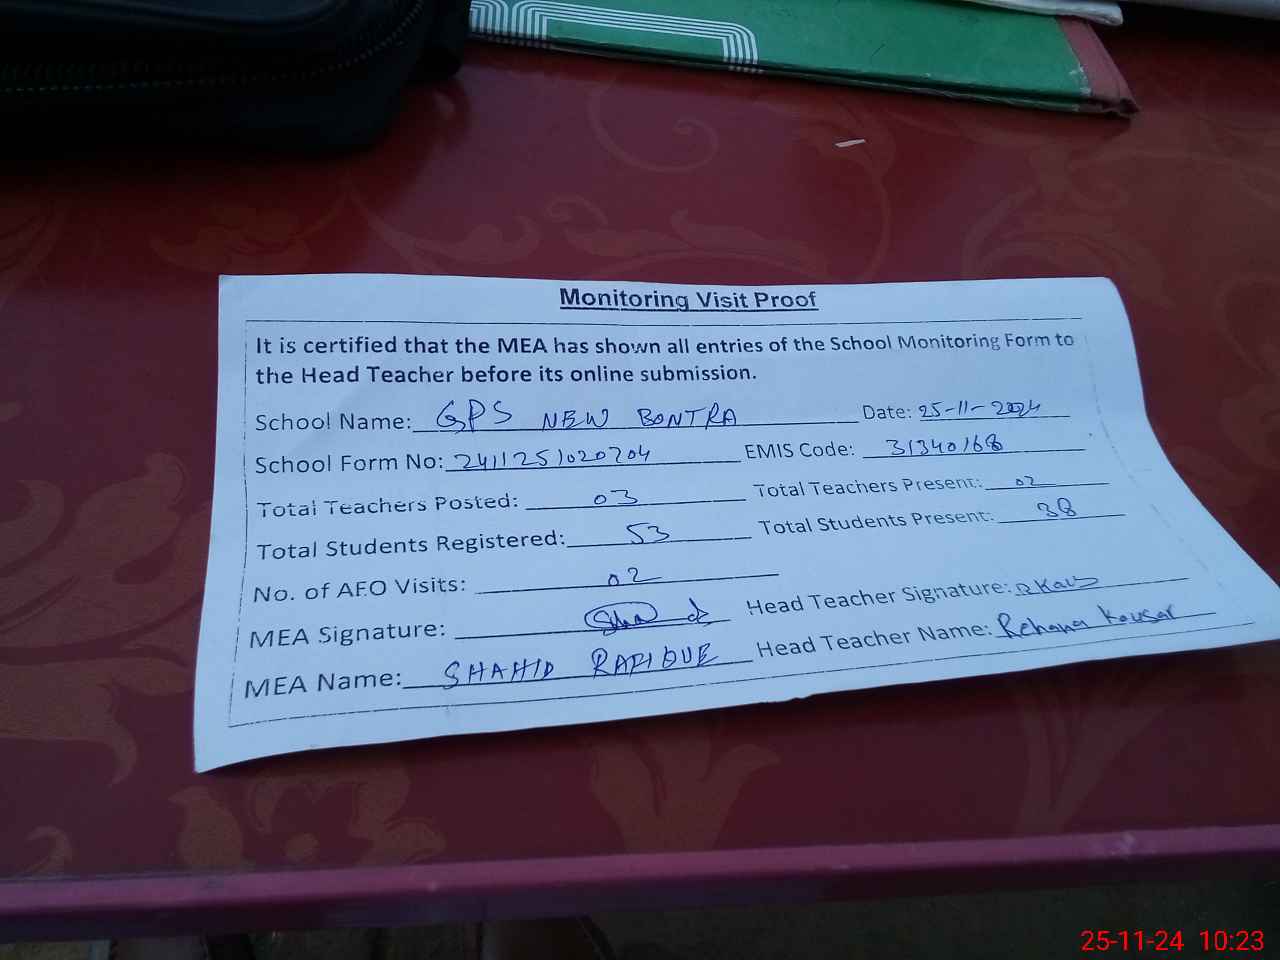 Monitoring Visit Proof
It is certified that the MEA has shown all entries of the School Monitoring Form to
the Head Teacher before its online submission.
School Name: GPS NEW BONTRA Date: 25-11-2024
School Form No: 2411251020204 EMIS Code: 31340168
Total Teachers Posted: 03 Total Teachers Present: 02
Total Students Registered: 53 Total Students Present: 38
No. of AEO Visits: 02
MEA Signature: Head Teacher Signature: R Kau
MEA Name: SHAHID RAFIQUE Head Teacher Name: Rehana Kousar
25-11-24 10:23